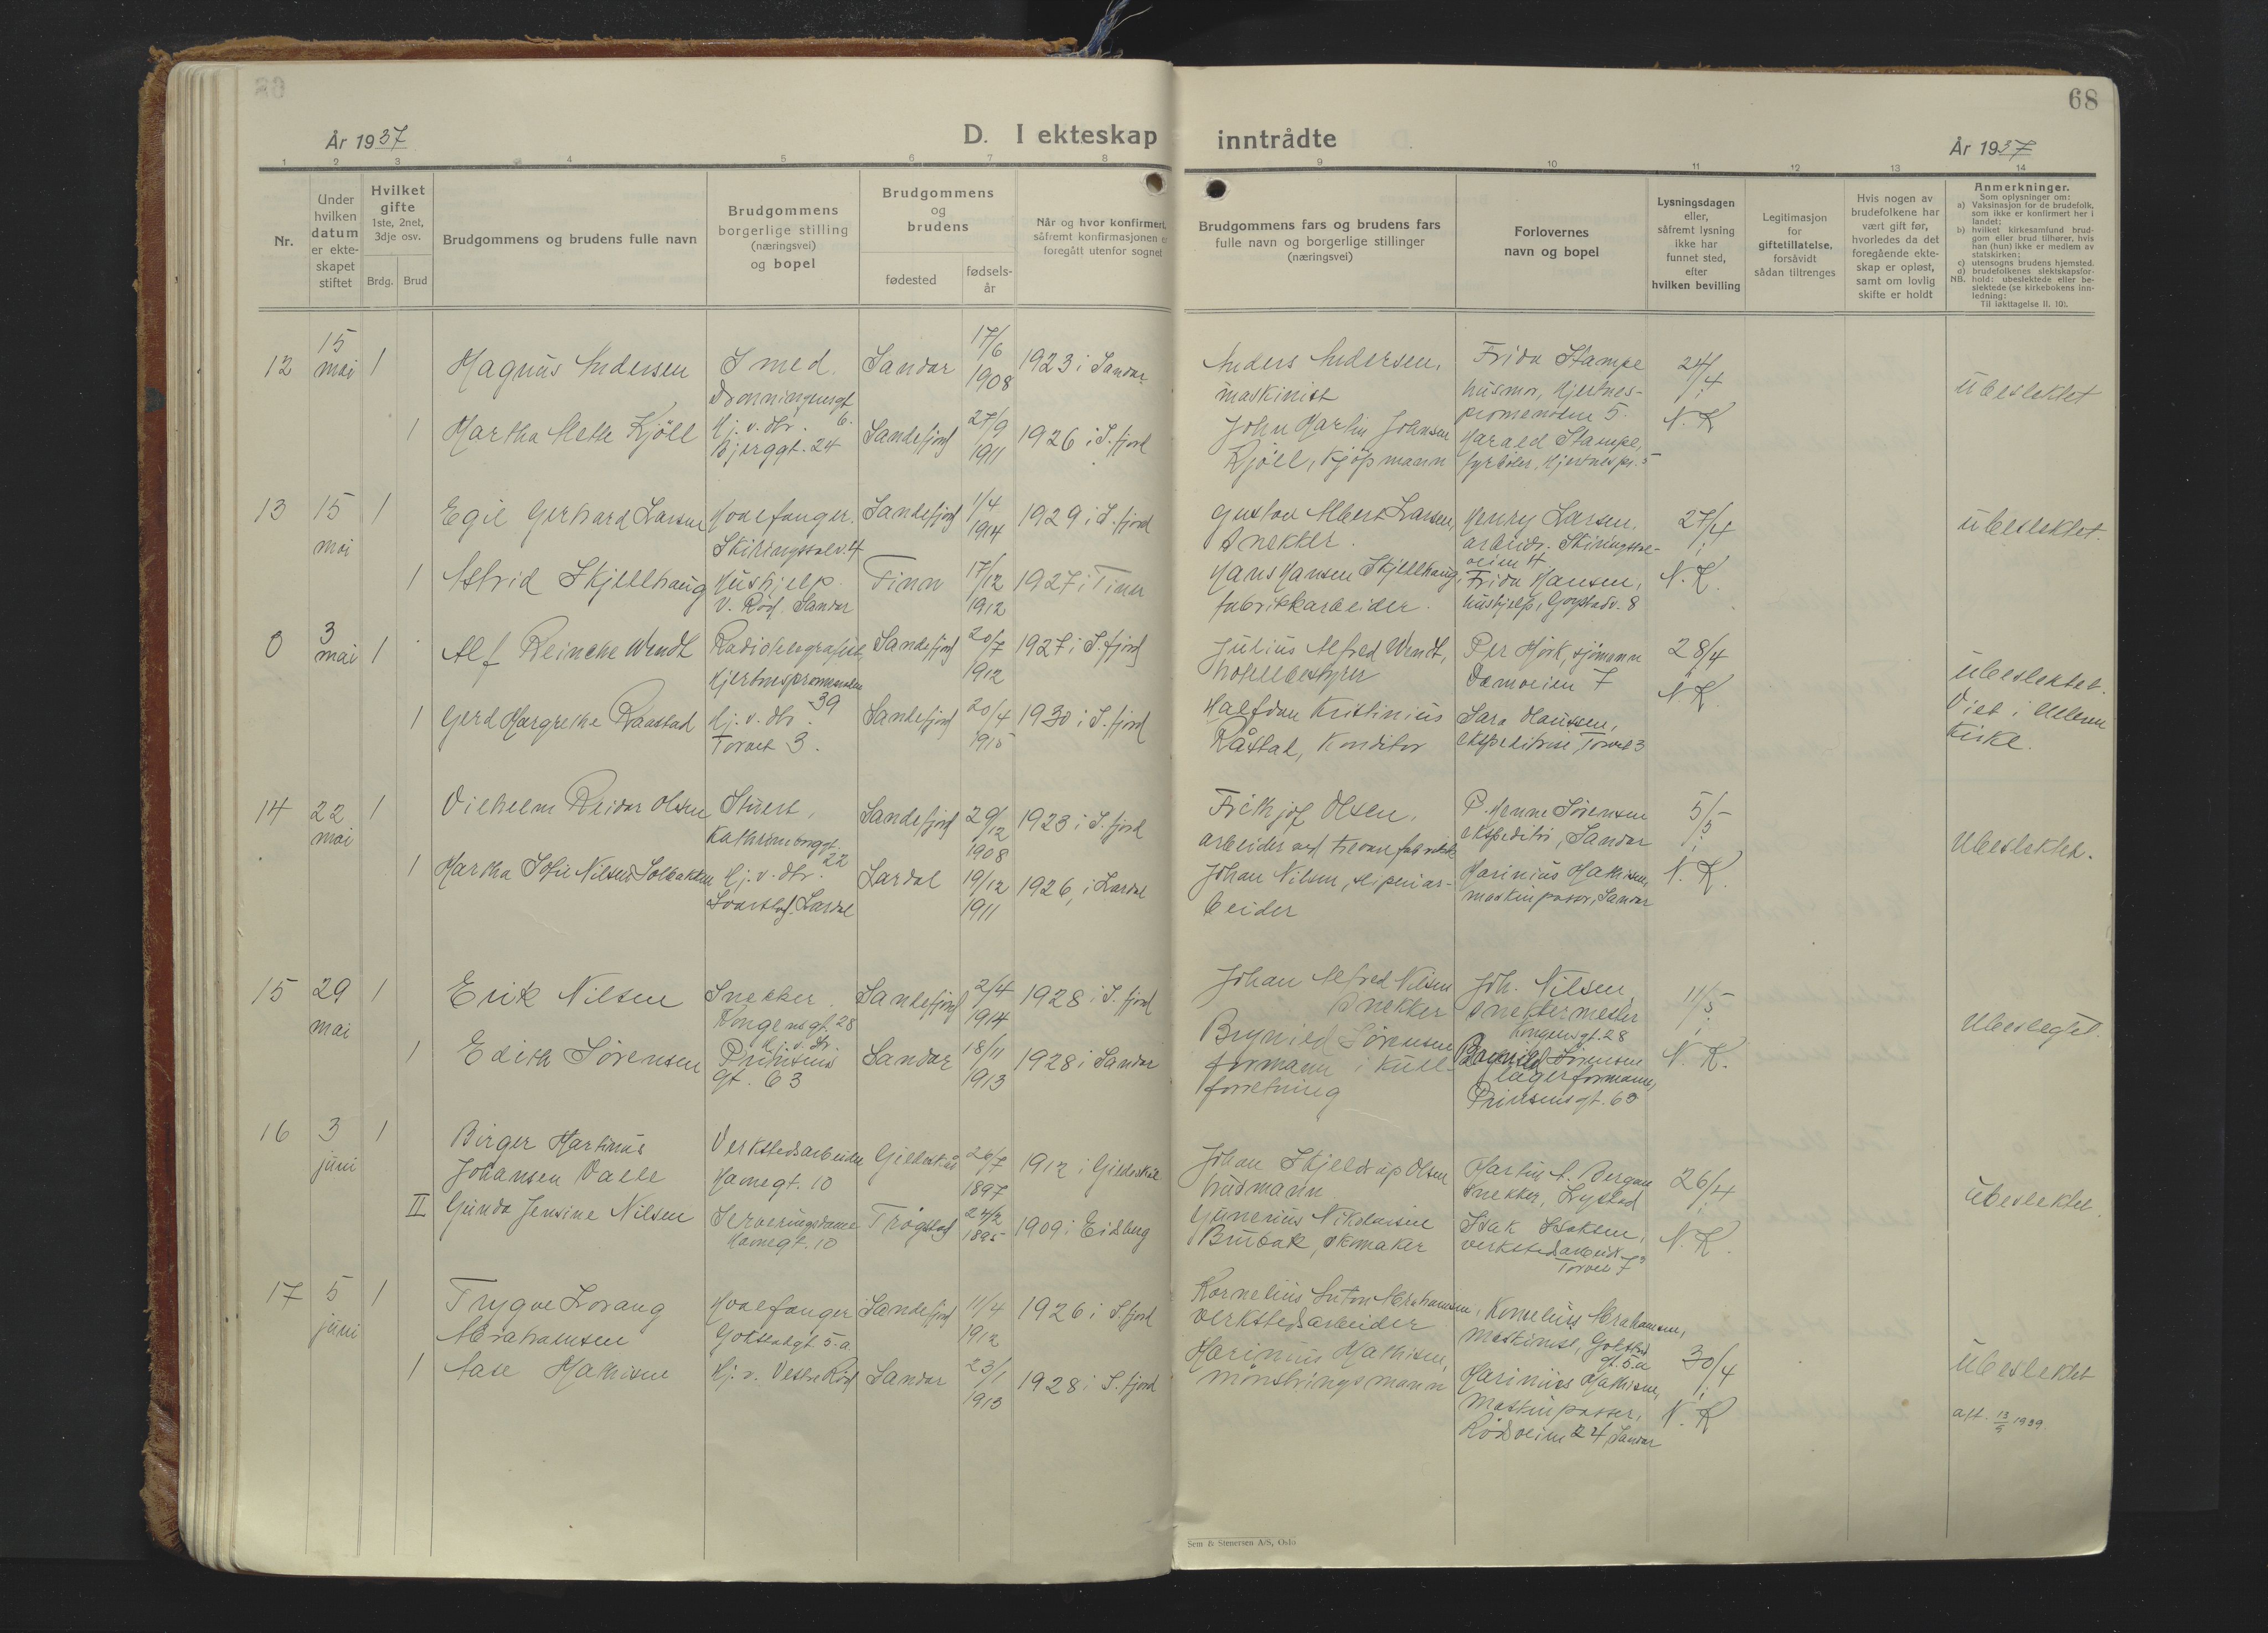 68
År 1937
D. I ekteskap
inntrådte
År 1937
1 2 3 4 5 6 7 8 9 10 11 12 13 14
Nr.
Under
hvilken
datum
er ekte-
skapet
stiftet
Hvilket
gifte
1ste, 2net,
3dje osv.
Brdg. Brud
Brudgommens og brudens fulle navn
Brudgommens
borgerlige stilling
(næringsvei)
og bopel
Brudgommens
og
brudens
fødested
fødsels-
år
Når og hvor konfirmert,
såfremt konfirmasjonen er
foregått utenfor sognet
Brudgommens fars og brudens fars
fulle navn og borgerlige stillinger
(næringsvei)
Forlovernes
navn og bopel
Lysningsdagen
eller,
såfremt lysning
ikke har
funnet sted,
efter
hvilken bevilling
Legitimasjon
for
giftetillatelse,
forsåvidt
sådan tiltrenges
Hvis nogen av
brudefolkene har
vært gift før,
hvorledes da det
foregående ekte-
skap er opløst,
samt om lovlig
skifte er holdt
Anmerkninger.
Som oplysninger om:
a) Vaksinasjon for de brudefolk,
som ikke er konfirmert her i
landet;
b) hvilket kirkesamfund brud-
gom eller brud tilhører, hvis
han (hun) ikke er medlem av
statskirken;
c) utensogns brudens hjemsted.
d) brudefolkenes slektskapsfor-
NB. hold: ubeslektede eller be-
slektede (se kirkebokens inn-
ledning:
Til iakttagelse II. 10).
12
15
mai
1
Magnus Andersen
Smed.
Dronningensgt
6.
Sandar
17/6
1908
1923 i Sandar
Anders Andersen,
maskinist
Frida Stampe
husmor, Hjertnes-
promenaden 5.
24/4
N.K
Ubeslektet
1
Martha Mette Kjöll
Hj. v. dtr.
Bjerggt. 24
Sandefjord
27/9
1911
1926 i S.fjord
John Martin Johnsen
Kjöll, Kjöpmann
Harald Stampe,
fyrböter, Hjertnespr. 5
13
15
mai
1
Egil Gerhard Larsen
Hvalfanger.
Skiringssalv. 4
Sandefjord
1/4
1914
1929 i S.fjord
Gustav Albert Larsen,
Snekker.
Henry Larsen,
arbeider. Skiringssal-
veien 4
27/4
N.K.
Ubeslektet.
1
Astrid Skjellhaug
Hushjelp.
V. Rød, Sandar
Tinn
17/12
1912
1927 i Tinn
Hans Hansen Skjellhaug,
fabrikkarbeider.
Frida Hansen,
hushjelp, Gogstadv. 8
0
3
mai
1
Alf Reincke Wendt
Radiotelegrafist
Hjertnespromenaden
39
Sandefjord
20/7
1912
1927 i S.fjord
Julius Alfred Wendt,
hotellbestyrer
Per Hjörk, sjömann
Damveien 7
28/4
N.K.
Ubeslektet.
Viet i Ullern
Kirke.
1
Gerd Margrethe Raastad
Hj. v. dtr.
Torvet 3.
Sandefjord
20/4
1915
1930 i S.fjord
Halfdan Kristinius
Råstad, Konditor
Sara Hansen,
ekspeditrise Torvet 3
14
22
mai
1
Vilhelm Reidar Olsen
Stuert,
Kathrineborggt.
22
Sandefjord
29/12
1908
1923 i S.fjord
Frithjof Olsen,
arbeider ved trevarefabrikk
P. Henne Sörensen
ekspeditör, Sandar
5/5
N.K.
Ubeslektet.
1
Martha Sofie Nilsen Solbakken
Hj. v. dtr.
Svarstad, Lardal
Lardal
19/12
1911
1926, i Lardal
Johan Nilsen, sliperiar-
beider
Marinius Mathisen,
maskinpasser, Sandar
15
29
mai
1
Erik Nilsen
Snekker.
Kongensgt. 28
Sandefjord
2/4
1914
1928 i S.fjord
Johan Alfred Nilsen
Snekker
Joh. Nilsen,
snekkermester
Kongensgt. 28
11/5
N.K.
Ubeslegtet.
1
Edith Sörensen
Hj. v. dtr.
Prinsens
gt. 63
Sandar
18/11
1913
1928 i Sandar
Brynild Sörensen
formann i kull-
forretning
Brynild Sörensen
lagerformann,
Prinsensgt. 63
16
3
juni
1
Birger Martinus
Johansen Valle
Verkstedsarbeider
Havnegt. 10
Gildeskål
26/7
1897
1912 i Gildeskål
Johan Skjeldrup Olsen
husmann
Martin A. Bergan
snekker, Lystad
26/4
N.K.
Ubeslektet.
II
Gunda Jensine Nilsen
Serveringsdame
Havnegt. 10
Trögstad
24/2
1895
1909 i Eidsberg
Gunerius Nikolaisen
Brubak, skomaker
Isak Isaksen,
verkstedsarbeid.
Torvet 7
17
5
juni
1
Trygve Lorang
Abrahamsen
Hvalfanger
Gokstadgt 5.a
Sandefjord
11/4
1912
1926 i S.fjord
Kornelius Anton Abrahamsen,
verkstedsarbeider
Kornelius Abrahamsen,
maskinist, Gokstad
gt. 5.a
30/4
N.K
Ubeslektet
aft. 13/9 1939.
1
Aase Mathisen
Hj. v. Vestre Rød
Sandar
23/1
1913
1928 i S.fjord
Marinius Mathisen,
mönstringsmann
Marinius Mathisen,
maskinpasser,
Rödsveien 24, Sandar
Sem & Stenersen A/S, Oslo